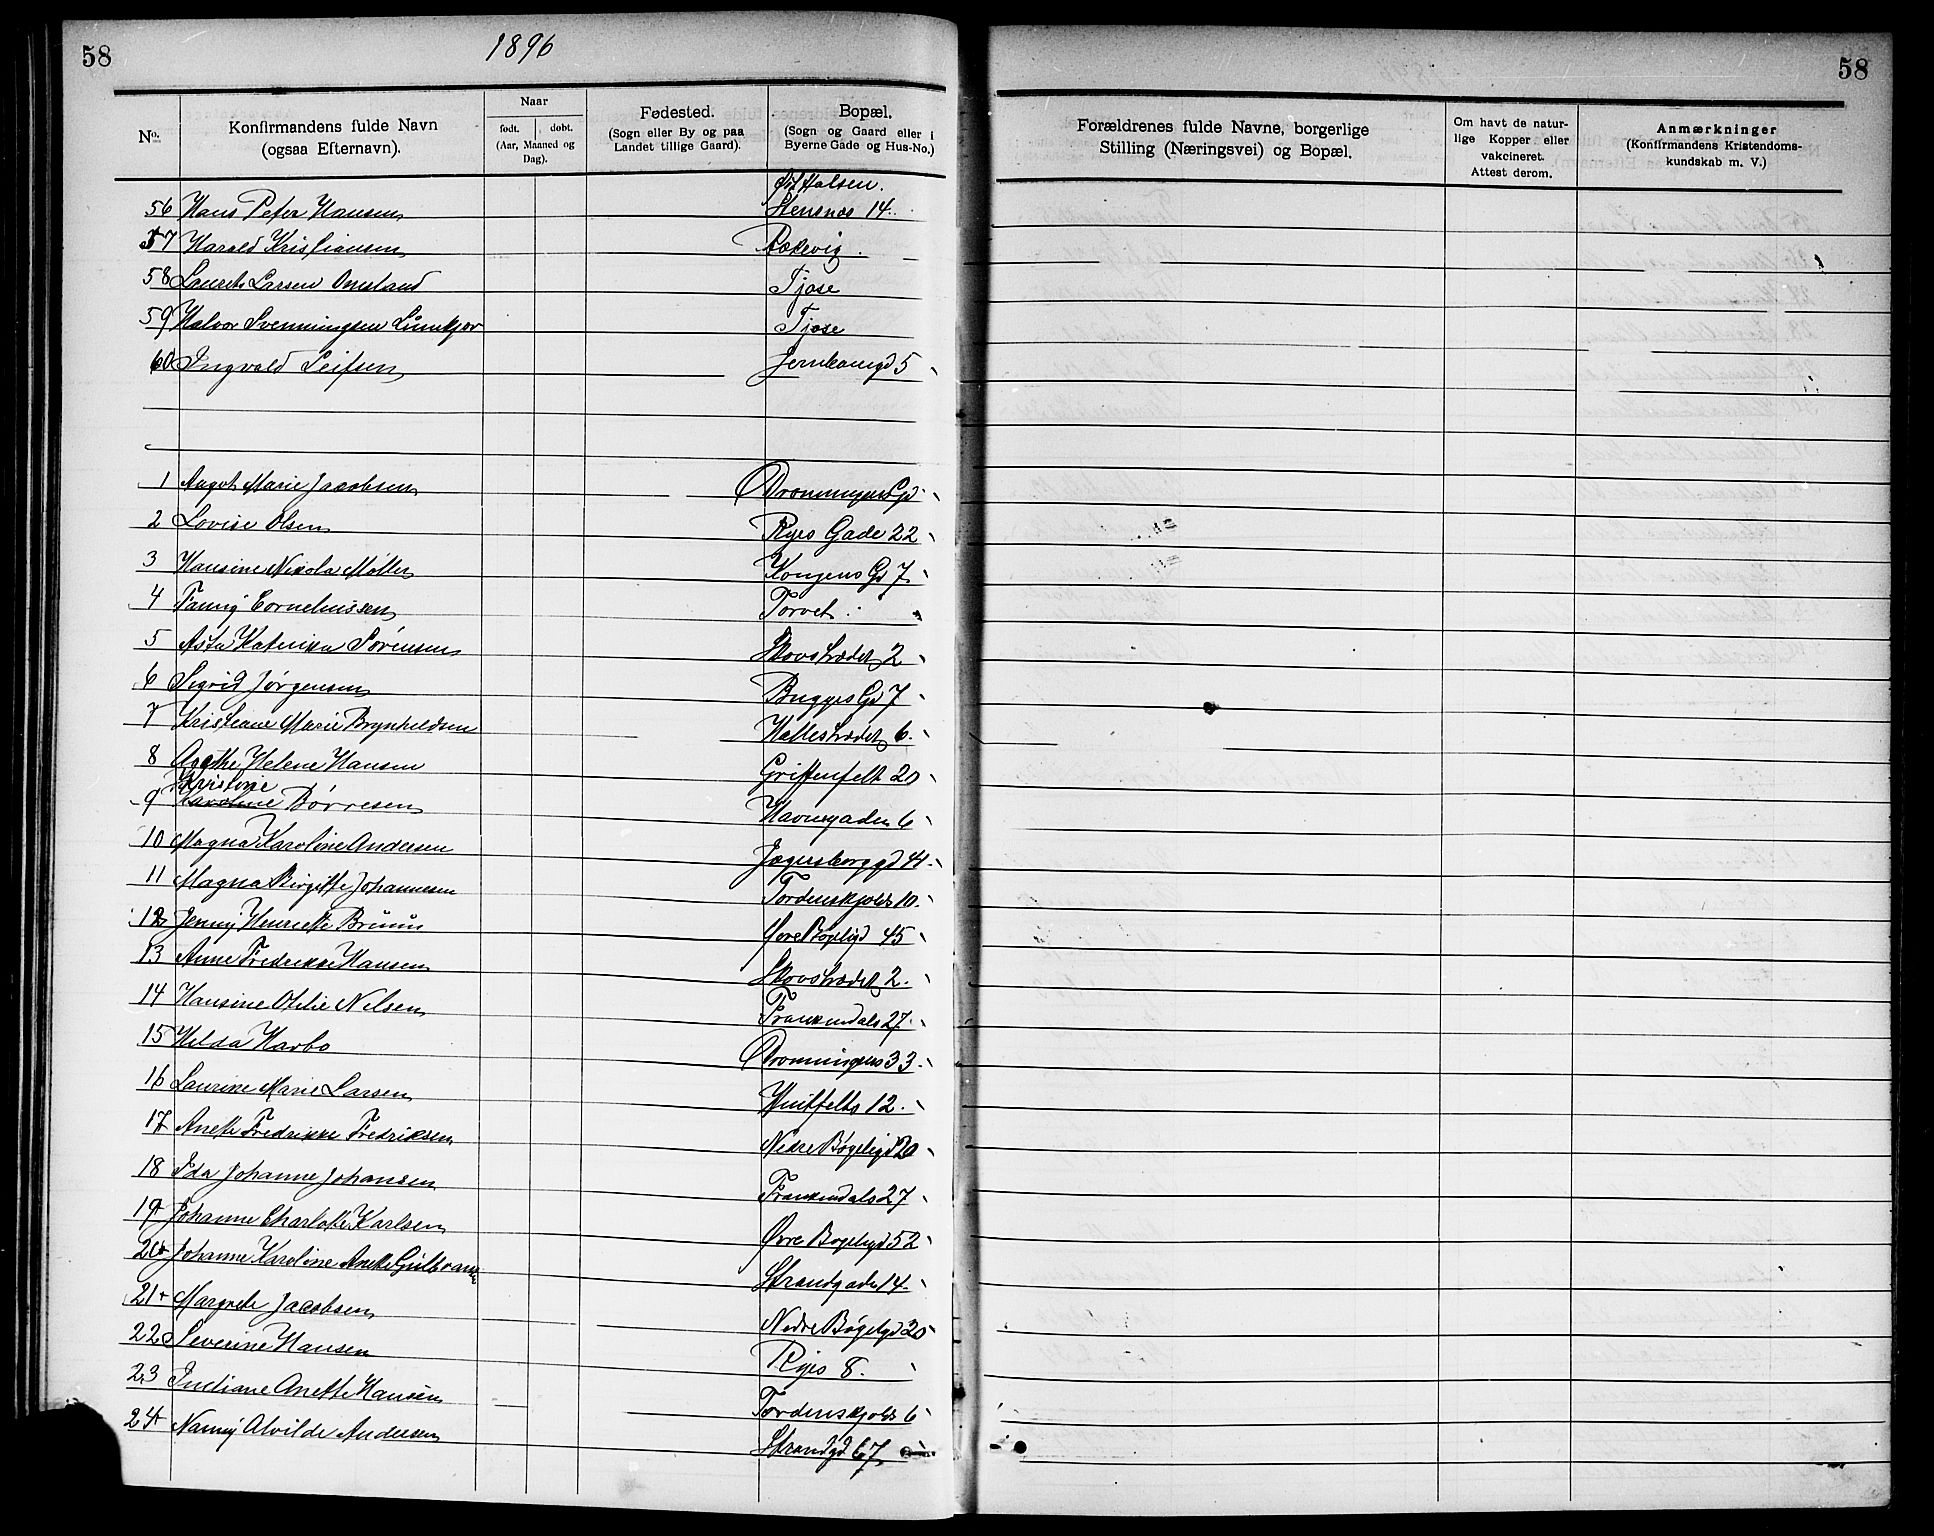 58
1896
No.
Konfirmandens fulde Navn
(ogsaa Efternavn).
Naar
født. døbt.
(Aar, Maaned og
Dag).
Fødested.
(Sogn eller By og paa
Landet tillige Gaard).
Bopæl.
(Sogn og Gaard eller i
Byerne Gade og Hus-No.)
Halsen.
56 Hans Peter Hansen Stensnæs 14.
57 Harald Kristiansen Rækevig.
58 Laurits Larsen Omsland Tjose
59 Halvor Svenningsen Tjose
60 Ingvald Leifsen 5
1 Aagot Marie Jacobsen Dronningens Gd
2 Lovise Olsen Ryes Gade 22
3 Hansine Nikola Møller Kongens Gd 7
4 Fanny Corneliussen Torvet
5 Asta Katerina Sørensen Skovstrædet 2
6 Sigrid Jørgensen Bugges Gd 7
7 Kristiane Marie Brynhildsen 6.
8 Agathe Helene Hansen Griffenfelt 20
Kristine
9 Karoline Børresen Havnegaden 6
10 Magna Karoline Andersen Jegersborggd 44
11 Magna Birgitte Johannesen Tordenskjolds 10.
12 Jenny Henriette Bruun Øvre Bøgeligd 45
13 Anne Fredrikke Hansen Skovstrædet 2.
14 Hansine Otilie Nilsen Frankendals 27.
15 Hilda Harbo Dronningens 33
16 Laurine Marie Larsen Huitfelts 12.
17 Anette Fredrikke Fredriksen Nedre Bøgeligd 20
18 Ida Johanne Johansen Frankendals 27
19 Johanne Charlotte Karlsen Øvre Bøgeligd 52
20 Johanne Karoline Anette Strandgade 14.
21 Margrete Jacobsen Nedre Bøgeligd 20
22 Severine Hansen Ryes 8.
23 Juliane Anette Hansen Tordenskjolds 6
24 Nanny Alvilde Andersen Strandgd 67
58
Forældrenes fulde Navne, borgerlige
Stilling (Næringsvei) og Bopæl.
Om havt de natur-
lige Kopper eller
vakcineret.
Attest derom.
Anmærkninger
(Konfirmandens Kristendoms-
kundskab m. V.)